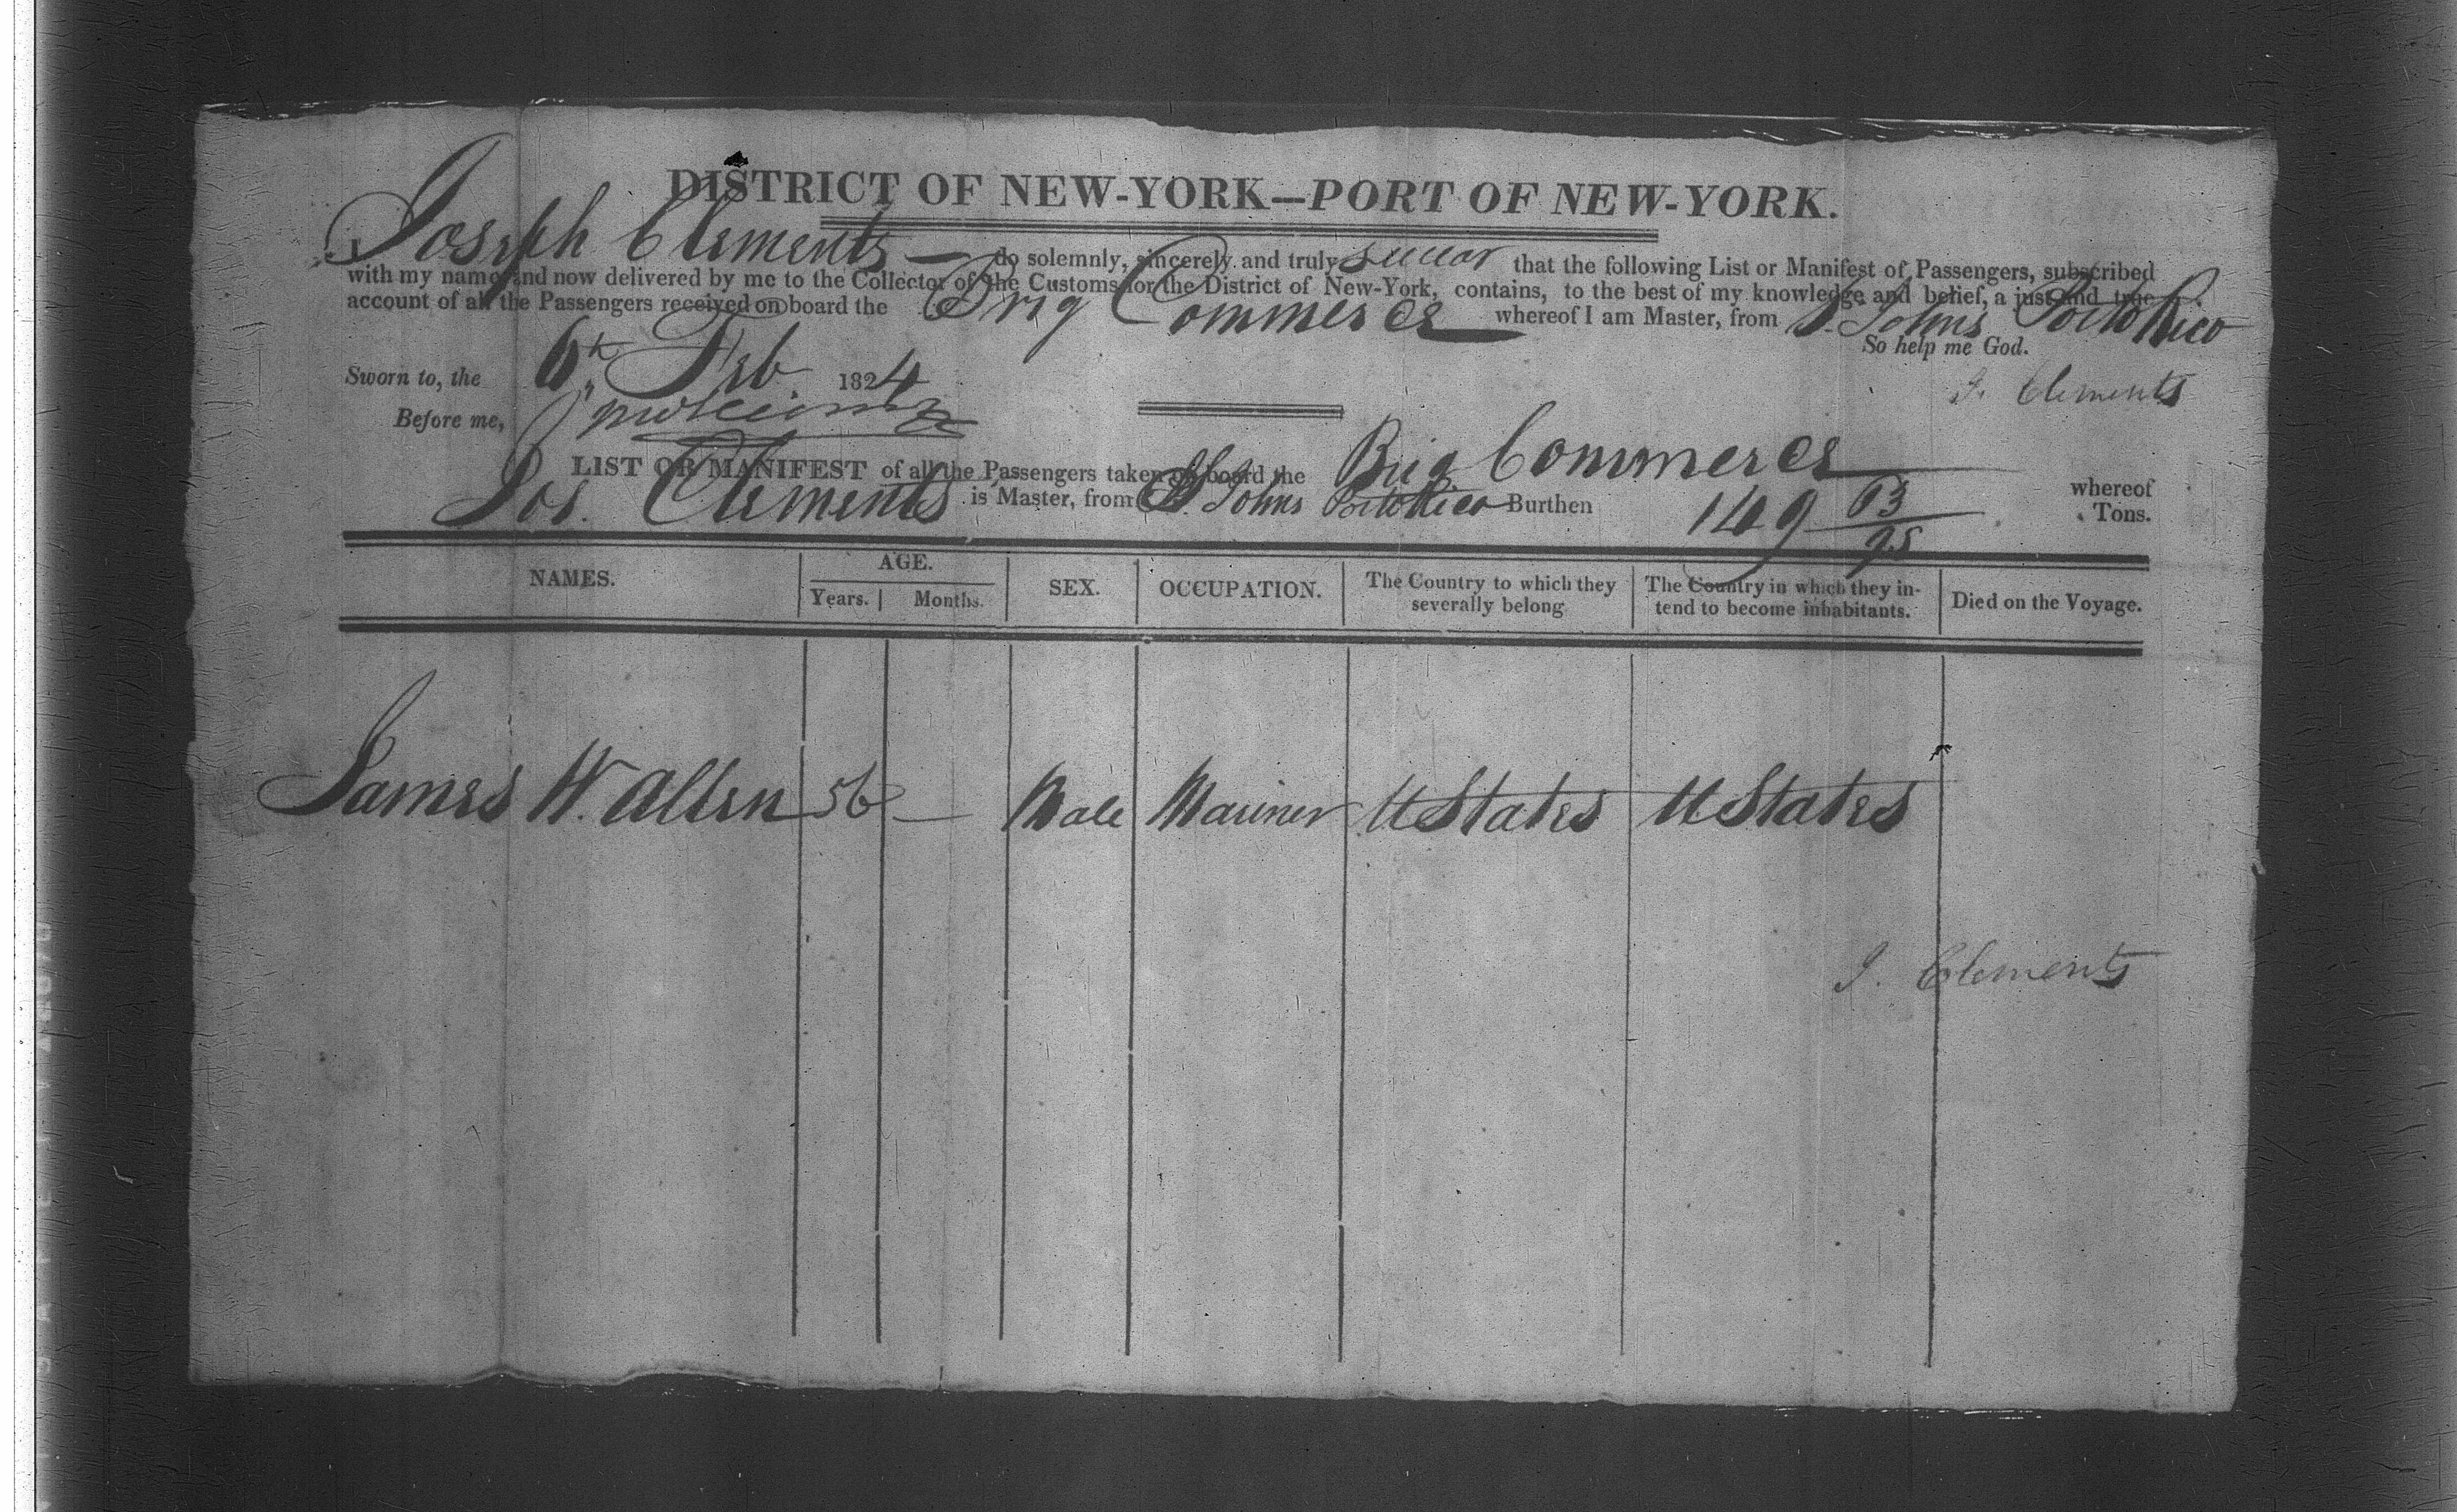 DISTRICT OF NEW-YORK—PORT OF NEW-YORK.
Joseph Clements — do solemnly, sincerely and truly swear that the following List or Manifest of Passengers, subscribed
with my name, and now delivered by me to the Collector of the Customs for the District of New-York, contains, to the best of my knowledge and belief, a just and true
account of all the Passengers received on board the Brig Commerce whereof I am Master, from St. Johns Porto Rico
So help me God.
Sworn to, the 6th Feb 1824
J. Clements
Before me,
LIST OR MANIFEST of all the Passengers taken on board the Brig Commerce whereof
Jos. Clements is Master, from St. Johns Porto Rico Burthen 149 93/95 Tons.
NAMES. AGE. SEX. OCCUPATION. The Country to which they severally belong. The Country in which they in-tend to become inhabitants. Died on the Voyage.
Years. Months.
James W. Allen 56 — Male Mariner U States U States
J. Clements